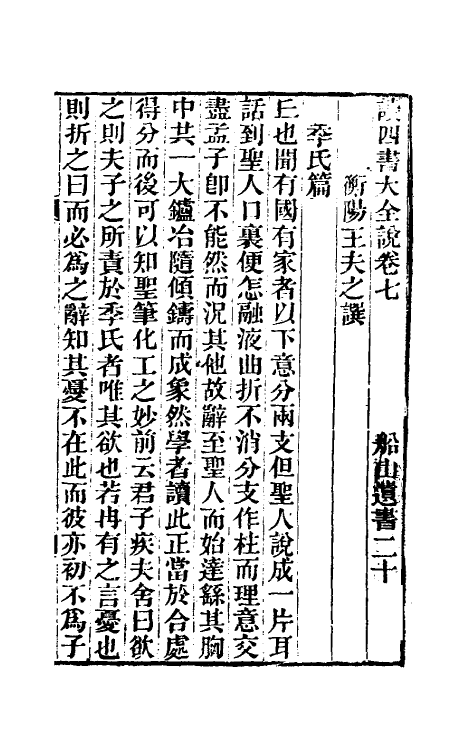 讀四書大全說卷七　船山遺書二十
衡陽王夫之譔
季氏篇
丘也聞有國有家者以下意分兩支但聖人說成一片耳
話到聖人口裏便怎融液曲折不消分支作柱而理意交
盡孟子卽不能然而況其他故辭至聖人而始達繇其胸
中共一大鑪冶隨傾鑄而成象然學者讀此正當於合處
得分而後可以知聖筆化工之妙前云君子疾夫舍曰欲
之則夫子之所責於季氏者唯其欲也若冉有之言憂也
則折之曰而必爲之辭知其憂不在此而彼亦初不爲子